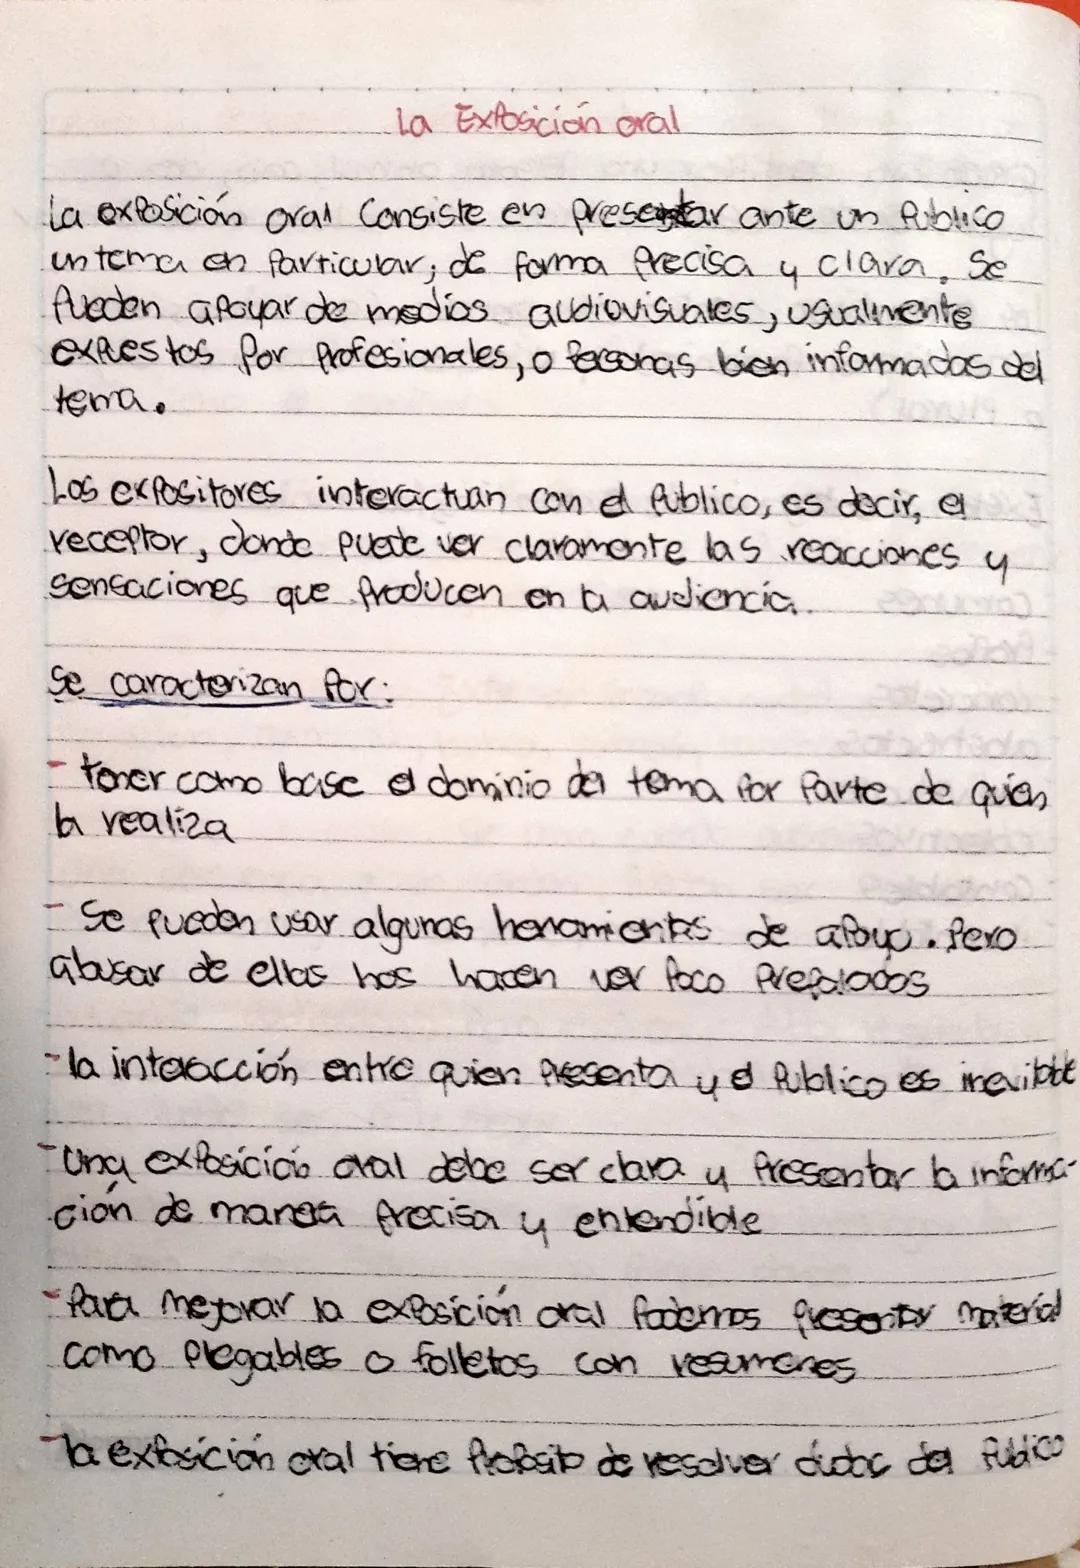 La Exposición oral
La exposición oral Consiste en presentar ante un Público
un tema en Particular, de forma Precisa y clara. Se
Pueden apoyar de medios audiovisuales, usualmente
expuestos Por Profesionales, o Personas bien informadas del
tema.
Los expositores interactuan con el Público, es decir, el
receptor, donde puede ver claramente las reacciones y
sensaciones que Producen en la audiencia.
Se caracterizan Por:
- tener como base el dominio del tema Por Parte de quien
la realiza
- Se pueden usar algunas herramientas de apoyo. Pero
abusar de ellas nos hacen ver Poco Preparados
- la interacción entre quien Presenta y el Público es inevitable
- Una exposición oral debe ser clara y Presentar la informa-
ción de manera Precisa y entendible
- Para mejorar la exposición oral Podemos Presentar material
como Plegables o folletos con resumenes
- la exposición oral tiene Proposito de resolver dudas del Público